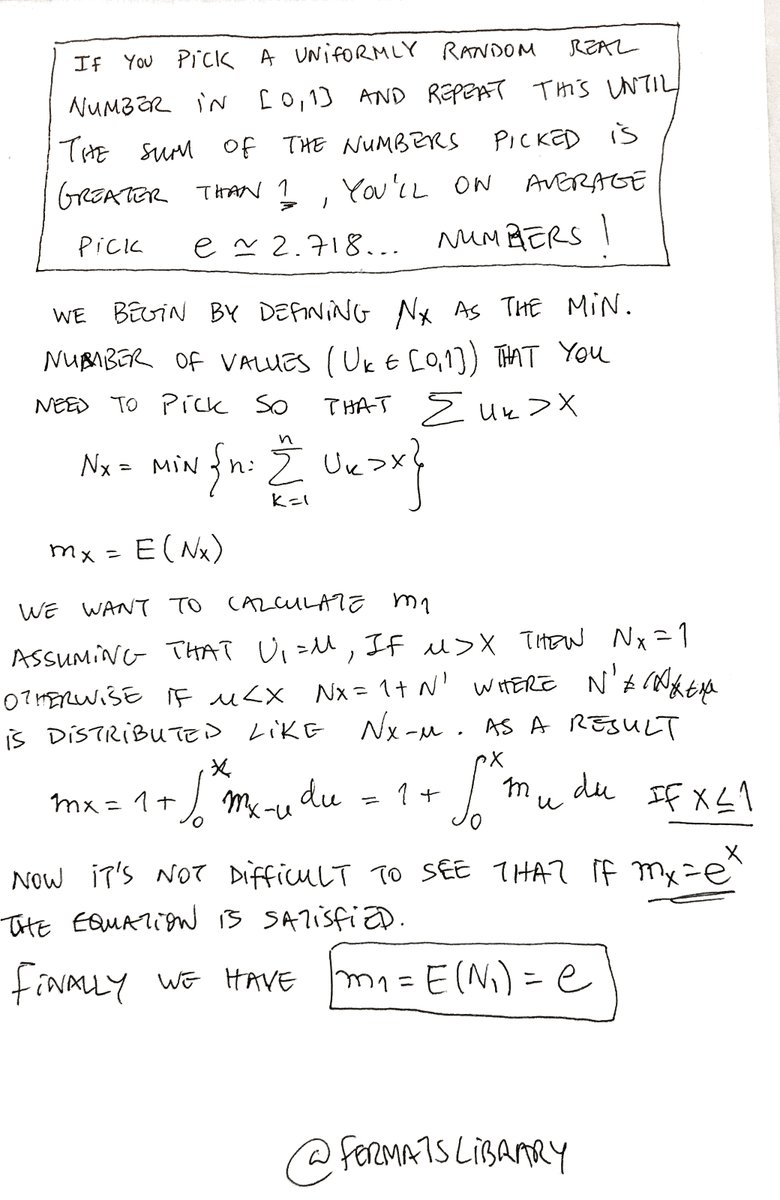 If YOU PICK A UNIFORMLY RANDOM REAL
NUMBER IN [0,1] AND REPEAT THIS UNTIL
THE SUM OF THE NUMBERS PICKED IS
GREATER THAN 1, YOU'LL ON AVERAGE
PICK e ≃ 2.718... NUMBERS!
WE BEGIN BY DEFINING Nx AS THE MIN.
NUMBER OF VALUES (Uk ∈ [0,1]) THAT YOU
NEED TO PICK SO THAT ∑ Uk > X
Nx = MIN {n: ∑_{k=1}^{n} Uk > x}
mx = E(Nx)
WE WANT TO CALCULATE m1
ASSUMING THAT U1 = u, IF u > X THEN Nx = 1
OTHERWISE IF u < X Nx = 1 + N' WHERE N'
IS DISTRIBUTED LIKE Nx-u. AS A RESULT
mx = 1 + ∫_0^x mx-u du = 1 + ∫_0^x mu du IF X ≤ 1
NOW IT'S NOT DIFFICULT TO SEE THAT IF mx = e^x
THE EQUATION IS SATISFIED.
FINALLY WE HAVE m1 = E(N1) = e
@FERMATSLIBRARY